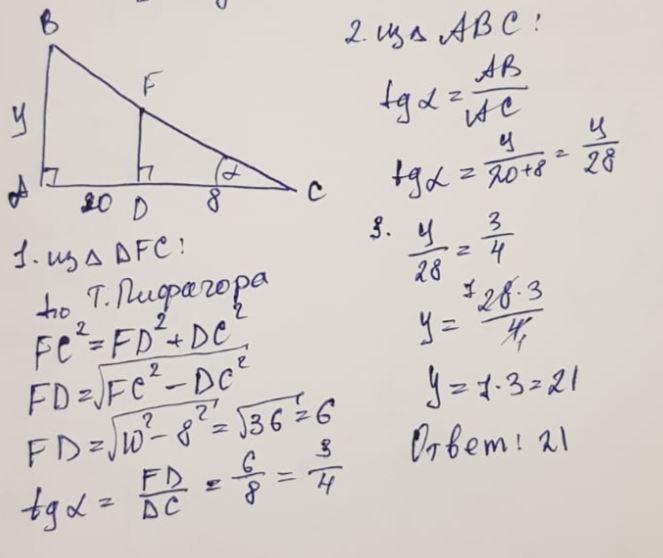 B
F
y
α
A
20
D
8
C
1. из △ DFC:
по Т. Пифагора
FC² = FD² + DC²
FD = √FC² − DC²
FD = √10² − 8² = √36 = 6
tg α = FD/DC = 6/8 = 3/4
2. из △ ABC:
tg α = AB/AC
tg α = y/20+8 = y/28
3. y/28 = 3/4
y = 7 28·3/4 1
y = 7·3 = 21
Ответ: 21